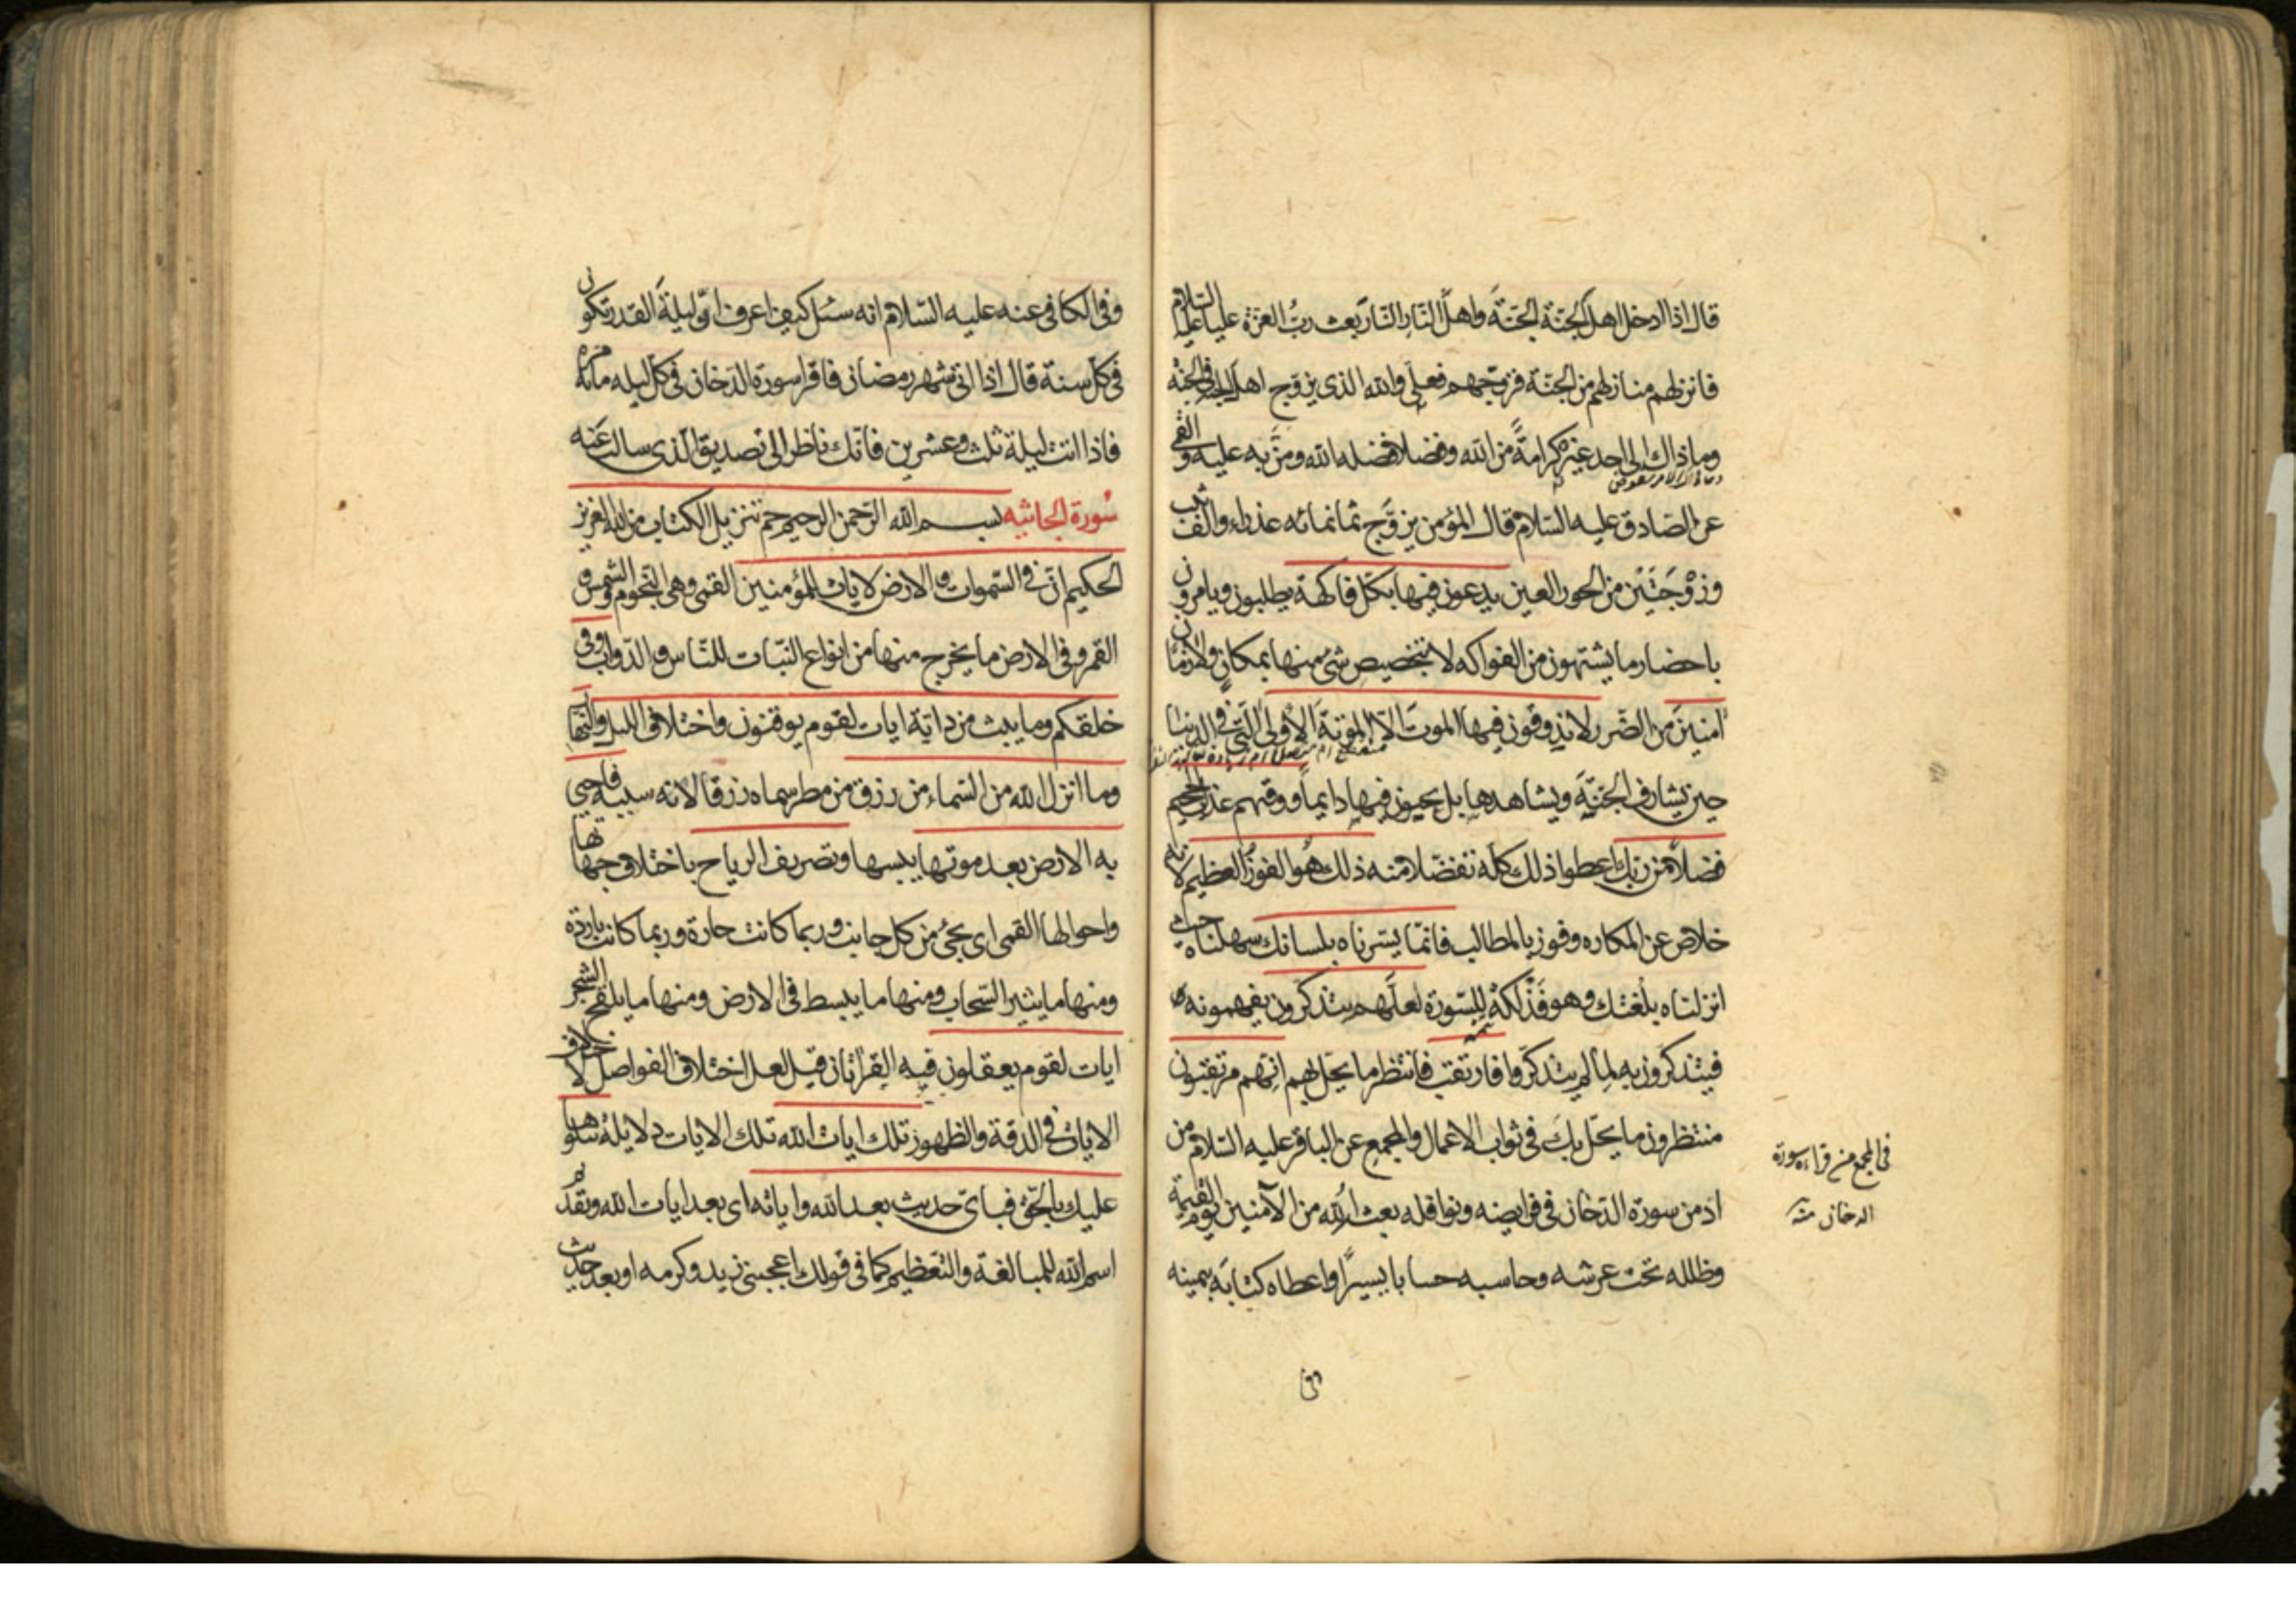 قال اذا ادخل اهل الجنّة الجنّةَ واهل النّارِ النّارَ بعث ربُّ العزّة عليا عليه السّلام
فانزلهم منازلهم من الجنّة فزوّجهم فعلي والله الذى يزوّج اهل الجنة فى الجنّة
وما ذاك الى احد غيره كرامةً من الله وفضلا فضله الله ومنَّ به عليه والقمى
عن الصّادق عليه السّلام قال المؤمن يزوّج ثمانمائه عذراء والف ثيب
وزوْجَتَيْن من الحور العين يدعون فيها بكلّ فاكهة يطلبون ويامرون
باحضار ما يشتهون من الفواكه لا يتخصيص شئ منها بمكانٍ ولا زمان
امنينَ من الضّرر لا يذوقون فيها الموتَ الّا الموتةَ الأولى الّتى فى الدنيا
حين يشارف الجنّةَ ويشاهدها بل يحيون فيها دايماً ووقيهم عذاب الجحيم
فضلاً من ربّك اعطوا ذلك كلّه تفضّلا منه ذلك هُو الفوزُ العظيم لانه
خلاص عن المكاره وفوز بالمطالب فانّما يسّرناه بلسانك سهلناه حيث
انزلناه بلغتك وهو فَذْلَكةٌ للسّورة لعلّهم يتذكّرون يفهمونه
فيتذكرون به لمّا لم يتذكّروا فارتقب فانتظر ما يحلّ بهم انّهم مرتقبون
منتظرون ما يحلّ بكَ فى ثواب الاعمال والمجمع عن الباقر عليه السّلام من
ادمن سورة الدّخان فى فرايضه ونوافله بعثه الله من الآمنين يوم القيمة
وظلله تحت عرشه وحاسبه حسابا يسيرًا واعطاه كتابَه بيمينه
فى المجمع من قراء سورة
الدخان منه
وفى
وفى الكافى عنه عليه السّلام انه سئل كيف اعرف انّ ليلةَ القدر تكون
فى كلّ سنة قال اذا اتى شهر رمضان فاقرا سورة الدّخان فى كلّ ليله مائة مرة
فاذا اتت ليلة ثلث وعشرين فانّك ناظر الى تصديق الّذى سالت عَنه
سُورة الجاثيه بسم الله الرّحمن الرحيم حم تنزيل الكتاب من الله العزيز
الحكيم انّ فى السّموات والارض لايات للمؤمنين القمى وهى النّجوم والشمس و
القمر وفى الارض ما يخرج منها من انواع النّبات للنّاس والدّواب وفى
خلقكم وما يبث من دابّة ايات لقوم يوقنون واختلاف الليل والنّهار
وما انزل الله من السّماء من رزق من مطر سماه رزقا لانه سببه فاحيى
به الارض بعد موتها يبسها وتصريف الرياح باختلاف جهاتها
واحوالها القمى اى يجئ من كل جانب وربما كانت حارة وربما كانت باردة
ومنها ما يثير السّحاب ومنها ما يبسط فى الارض ومنها ما يلقح الشجر
ايات لقوم يعقلون فيه القرائتان قيل لعل اختلاف الفواصل لاختلاف
الايات فى الدقة والظهور تلك ايات الله تلك الايات دلايله نتلوها
عليك بالحقّ فباىّ حديث بعد الله واياته اى بعد ايات الله وتقديم
اسم الله للمبالغة والتعظيم كما فى قولك اعجبنى زيد وكرمه او بعد حديث